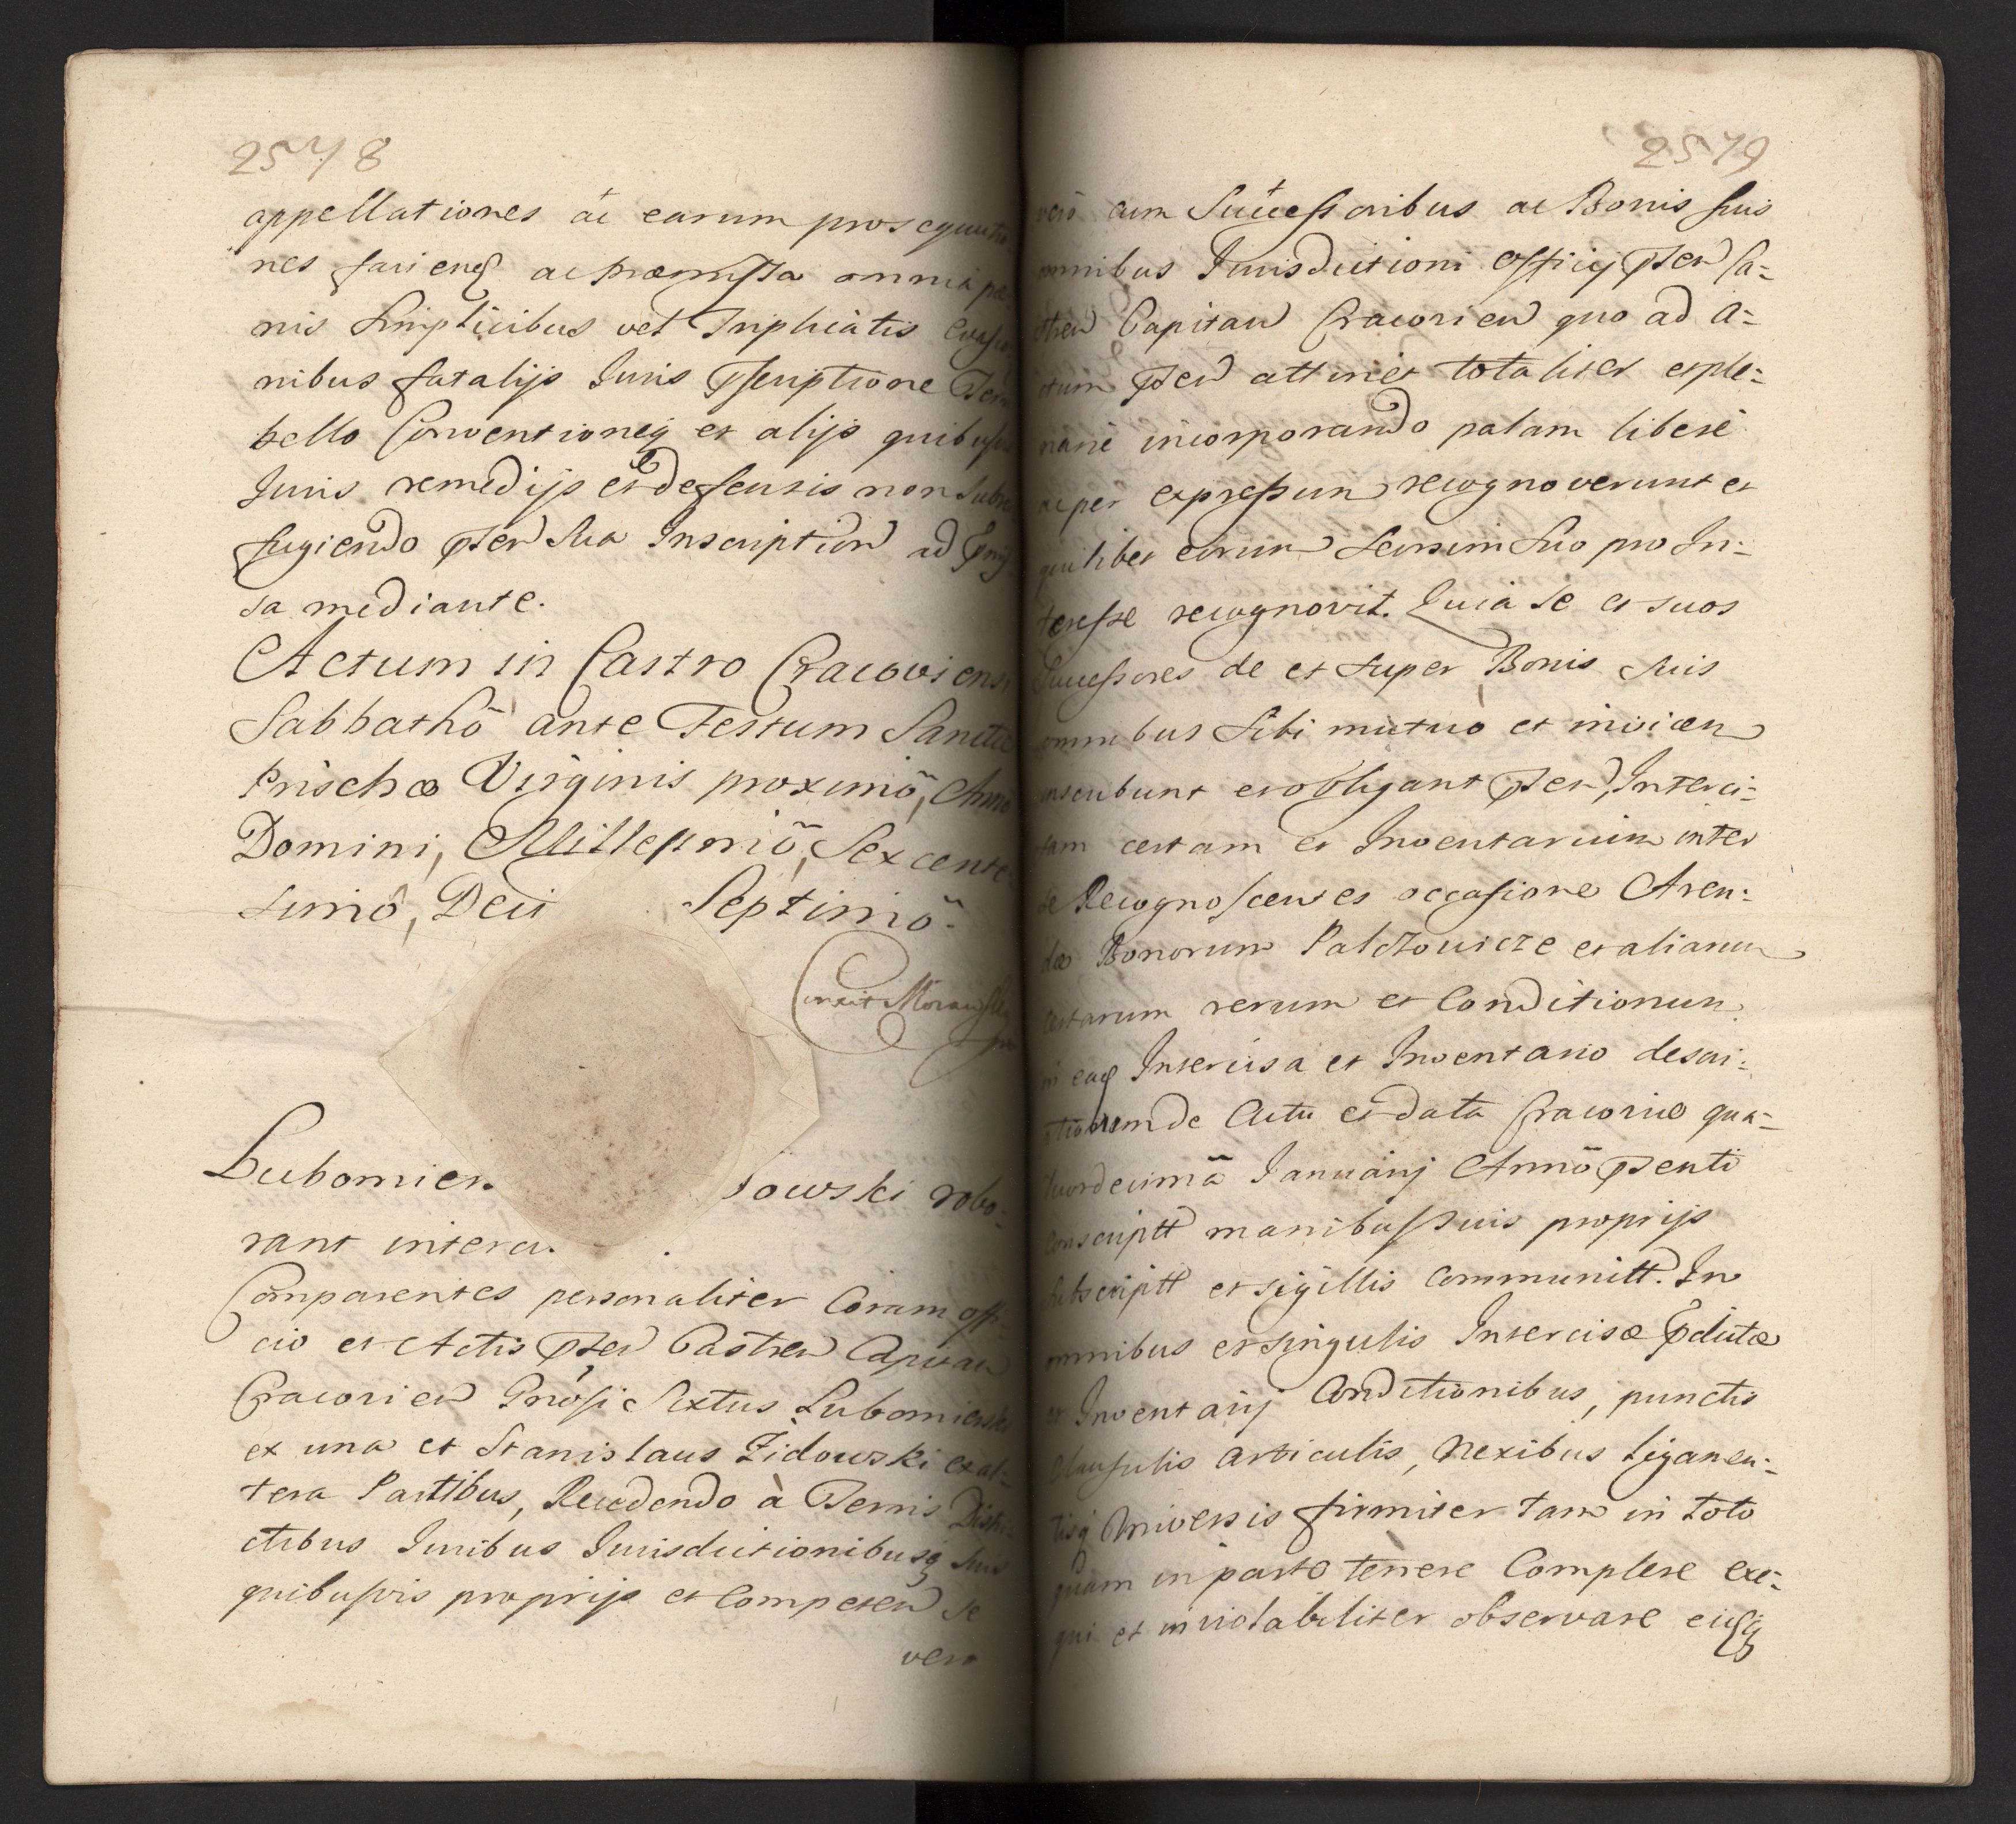 2578
appellationes ac earum prosequutio
nes faciend ac praemissa omnia poe
nis simplicibus vel Triplicatis evasio
nibus fatalijs Juris pscriptione Ter
bello Conventioneq et alijs quibusvis
Juris remedijs et defensis non subter
fugiendo pten sua Inscription ad pmis
sa mediante.
Actum in Castro Cracoviensi
Sabbathõ ante Festum Sanctae
Prischae Virginis proximõ, Annõ
Domini, Millesimõ, Sexcente
simõ, Deci Septimõ.
Correxit
Lubomier. dowski robo-
rant interci.
Comparentes personaliter Coram offi
cio et Actis pten Castren Capitan
Cracovien Gnosi Sextus Lubomierski
ex una et Stanislaus Zidowski ex al-
tera Partibus, Recedendo à Terris Distri
ctibus Juribus Jurisdictionibusq suis
quibusvis proprijs et Competen se
vero
2579
vero cum Successoribus ac Bonis suis
omnibus Jurisdictioni officij pten Ca-
stren Capitan Cracovien quo ad A-
ctum pten attinet totaliter et ple-
nariè incorporando palam liberè
ac per expressum recognoverunt et
quilibet eorum seorsim suo pro In-
teresse recognovit. Quia se et suos
Successores de et super Bonis suis
omnibus sibi mutuo et invicem
inscribunt et obligant pten, Interci-
sam certam et Inventarium inter
se Recognoscentes occasione Aren-
dae Bonorum Palczowicze et aliarum
certarum rerum et Conditionum
in eaq Intercisa et Inventario descri-
ptiorum de Actu et data Cracoviae qua-
tuordecimã Januarij Annõ psenti
conscriptt manibus suis proprijs
subscriptt et sigillis communitt. In
omnibus et singulis Intercisae pdictae
et Inventarij Conditionibus, punctis
clausulis articulis, nexibus ligamen-
tisq universis firmiter tam in toto
quam in parte tenere Complere exe-
qui et inviolabiliter observare eiusq